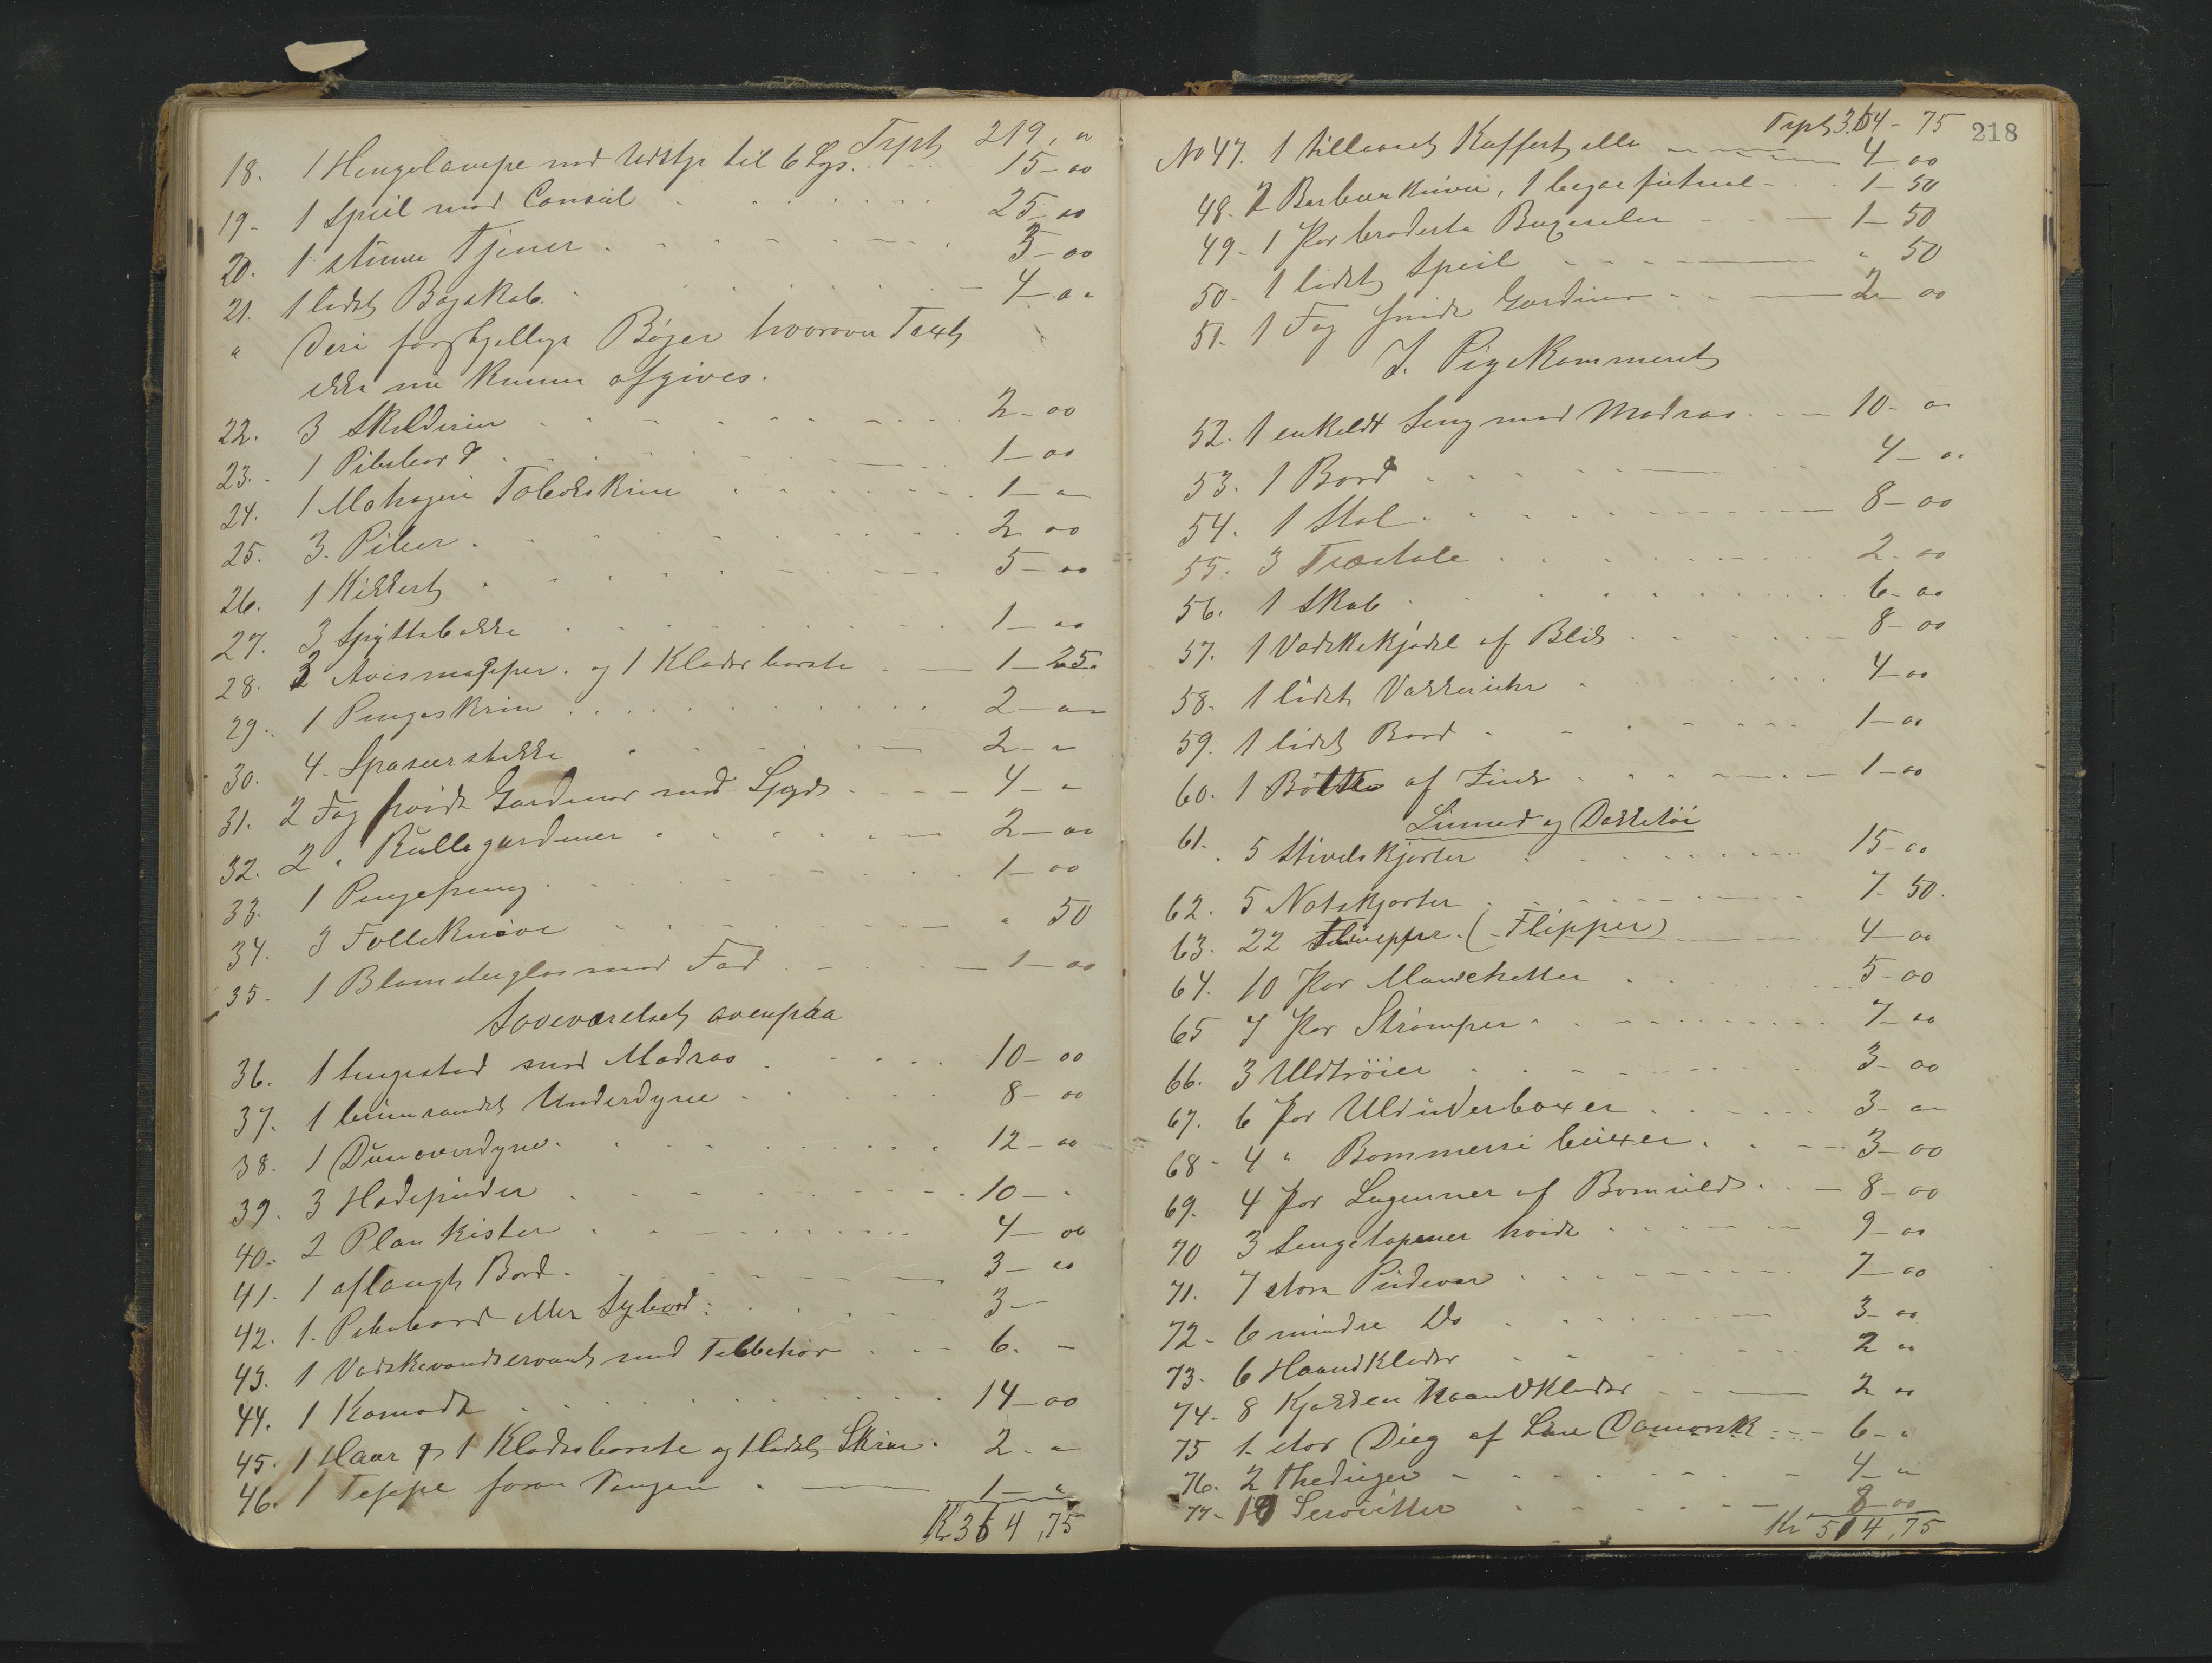 Trpt 219, "
18. 1 Hengelampe med Udstyr til 6 Lys. 15-00
19- 1 Speil med Consúl 25-00
20. 1 stúmm Tjener. 5-00
21. 1 lidet Bogskab. 4-00
" Deri forskjellige Bøger hvorover Taxt
ikke nu kunne afgives.
22. 3 Skilderier 2-00
23. 1 Pibebord 1-00
24. 1 Mahogni Tobakskrin 1-"
25. 3. Piber. 2 00
26. 1 Kikkert 5-00
27. 3 Spyttebakke 1-00
28. 2 Avismapper. og 1 Klædesbørste 1-25.
29. 1 Pengeskrin 2-00
30. 4. Spaserstokke 2-"
31. 2 Fag hvide Gardiner med Lyds 4-"
32. 2 " Rullegardiner 2-00
33. 1 Pengepung. 1-00
34. 3 Follekniøve " 50
35. 1 Blomsterglas med Fad 1-00
Soveværelset ovenpaa
36. 1 Sengested med Madras 10-00
37. 1 brunrandet Underdyne 8-00
38. 1 Dunoverdyne. 12-00
39. 3 Hodepúder 10-"
40. 2 Plankister 4-00
41. 1 aflangt Bord. 3-00
42. 1. Pibebord eller Sybord: 3--
43. 1 Vadskevandservant med Tilbehør 6. -
44. 1 Komode 14-00
45. 1 Haar & 1 Klædesbørste og 1 lidet Skrin. 2-"
46. 1 Teppe foran Sengen 1-"
Kr 364,75
Trpt 364-75
218
No 47. 1 tillaaset Kuffert 4-00
48. 2 Barberknive, 1 1-50
49- 1 Par broderte Buxeseler 1-50
50- 1 lidet Speil " 50
51- 1 Fag hvide Gardiner 2-00
I. Pigekammeret
52. 1 enkeldt Seng med Madras 10-"
53. 1 Bord 4-00
54. 1 Stol 8-00
55. 3 Træstole 2-00
56. 1 Skab 6-00
57. 1 Vadskekjedel af Blik 8-00
58. 1 lidet Vækkeruhr 4-00
59. 1 lidet Bord 1-00
60. 1 Bøtte af Zink 1-00
Linned og Dækketøi
61. 5 Stivelskjorter 15-00
62. 5 Natskjorter 7-50.
63. 22 (Flipper) 4-00
64. 10 Par Manchetter 5-00
65 7 Par Strømper 7-00
66. 3 Uldtrøier 3-00
67. 6 Par Uldunderboxer 3-00
68- 4 " Bommersi búxer. 3-00
69. 4 Par Lagenner af Bomúld 8-00
70 3 Sengetæpper hvide 9-00
71. 7 store Púdevar 7-00
72- 6 mindre Do 3-00
73. 6 Haandklæder 2 00
74- 8 Kjøkken Haandklæder 2 00
75 1. stor Dúg af Line Damansk 6-"
76. 2 Thedúger 4-00
77- 10 Servietter 8 00
Kr 514,75